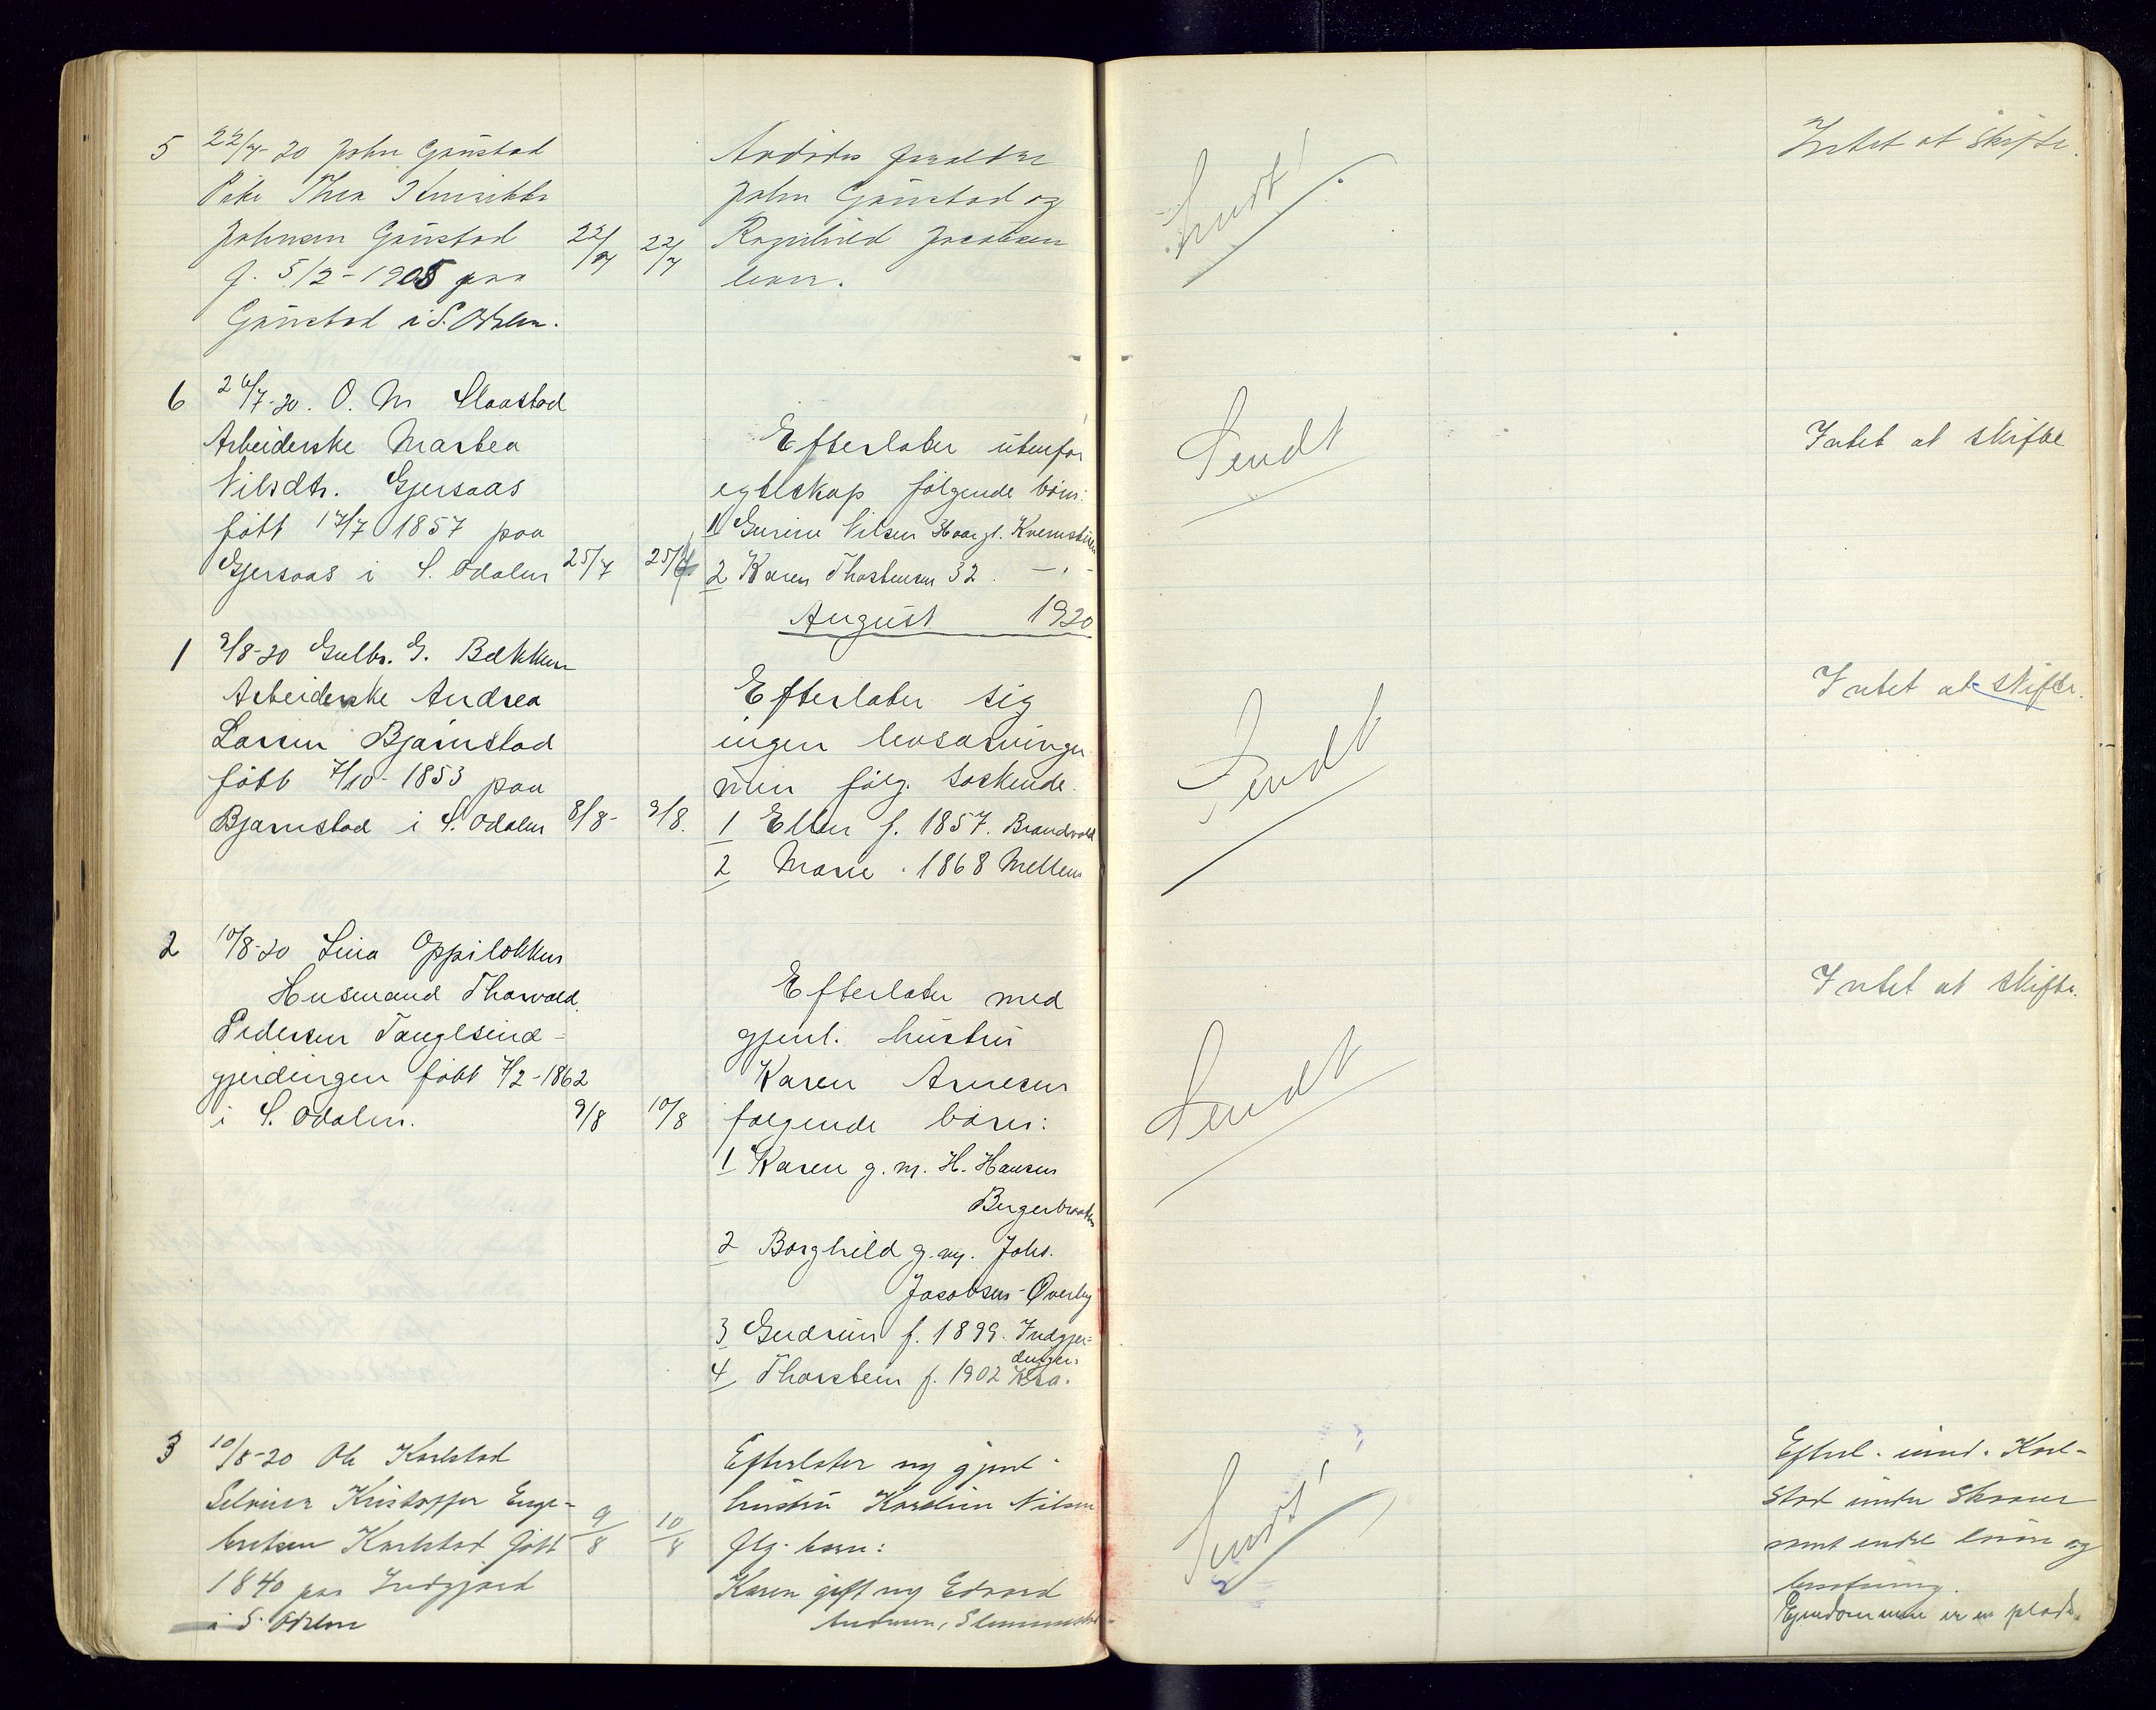 5 22/7-20 John Gaustad
Pike Thea
Johnsen Gaustad 22/7 22/7
f. 5/2-1905 paa
Gaustad i S. Odalen.
Avdødes foreldre
John Gaustad og
Ragnhild Jacobsen
lever.
Sendt!
Intet at skifte.
6 26/7-20. O. M. Slaastad
Arbeiderske Marthea
Nilsdtr. Gjersaas
født 17/7 1857 paa
Gjersaas i S. Odalen 25/7
Efterlater utenfor
egteskap følgende børn:
1 Gurine Nilsen
2 Karen Thorstensen 32. — " —
Sendt
Intet at skifte
August 1920
1 9/8-20 Gulbr. G. Bekken
Arbeiderske Andrea
Larsen Bjørnstad
født 7/10-1853 paa
Bjørnstad i S. Odalen 8/8- 9/8.
Efterlater sig
ingen livsarvinger
men følg. søskende.
1 Ellen f. 1857. Brandvold
2 Marie . 1868 Mellem
Sendt
Intet at skifte.
2 10/8-20 Lina Oppiløkken
Husmand Thorvald
Pedersen Tanglseind-
gjerdingen født 7/2-1862
i S. Odalen. 9/8 10/8
Efterlater med
gjenl. hustru
Karen Arnesen
følgende børn:
1 Karen g. m. H. Hansen
Bergerbraaten
2 Borghild g. m. Johs.
Jacobsen-Øverby
3 Gudrun f. 1899. Indgjer-
dingen
4 Thorstein f. 1902
Sendt
Intet at skifte.
3 10/8-20 Ole Karlstad
Selveier Kristoffer Enge-
bretsen Karlstad født 9/8 10/8
1840 paa Indgjærd
i S. Odalen
Efterlater m gjenl.
hustru Karoline Nilsen
flg. barn:
Karen gift m Edvard
Andersen,
Sendt!
Efterl. eiend. Karl-
stad under Skaaner
samt endel løsøre og
besetning.
Eiendommen er en plads.